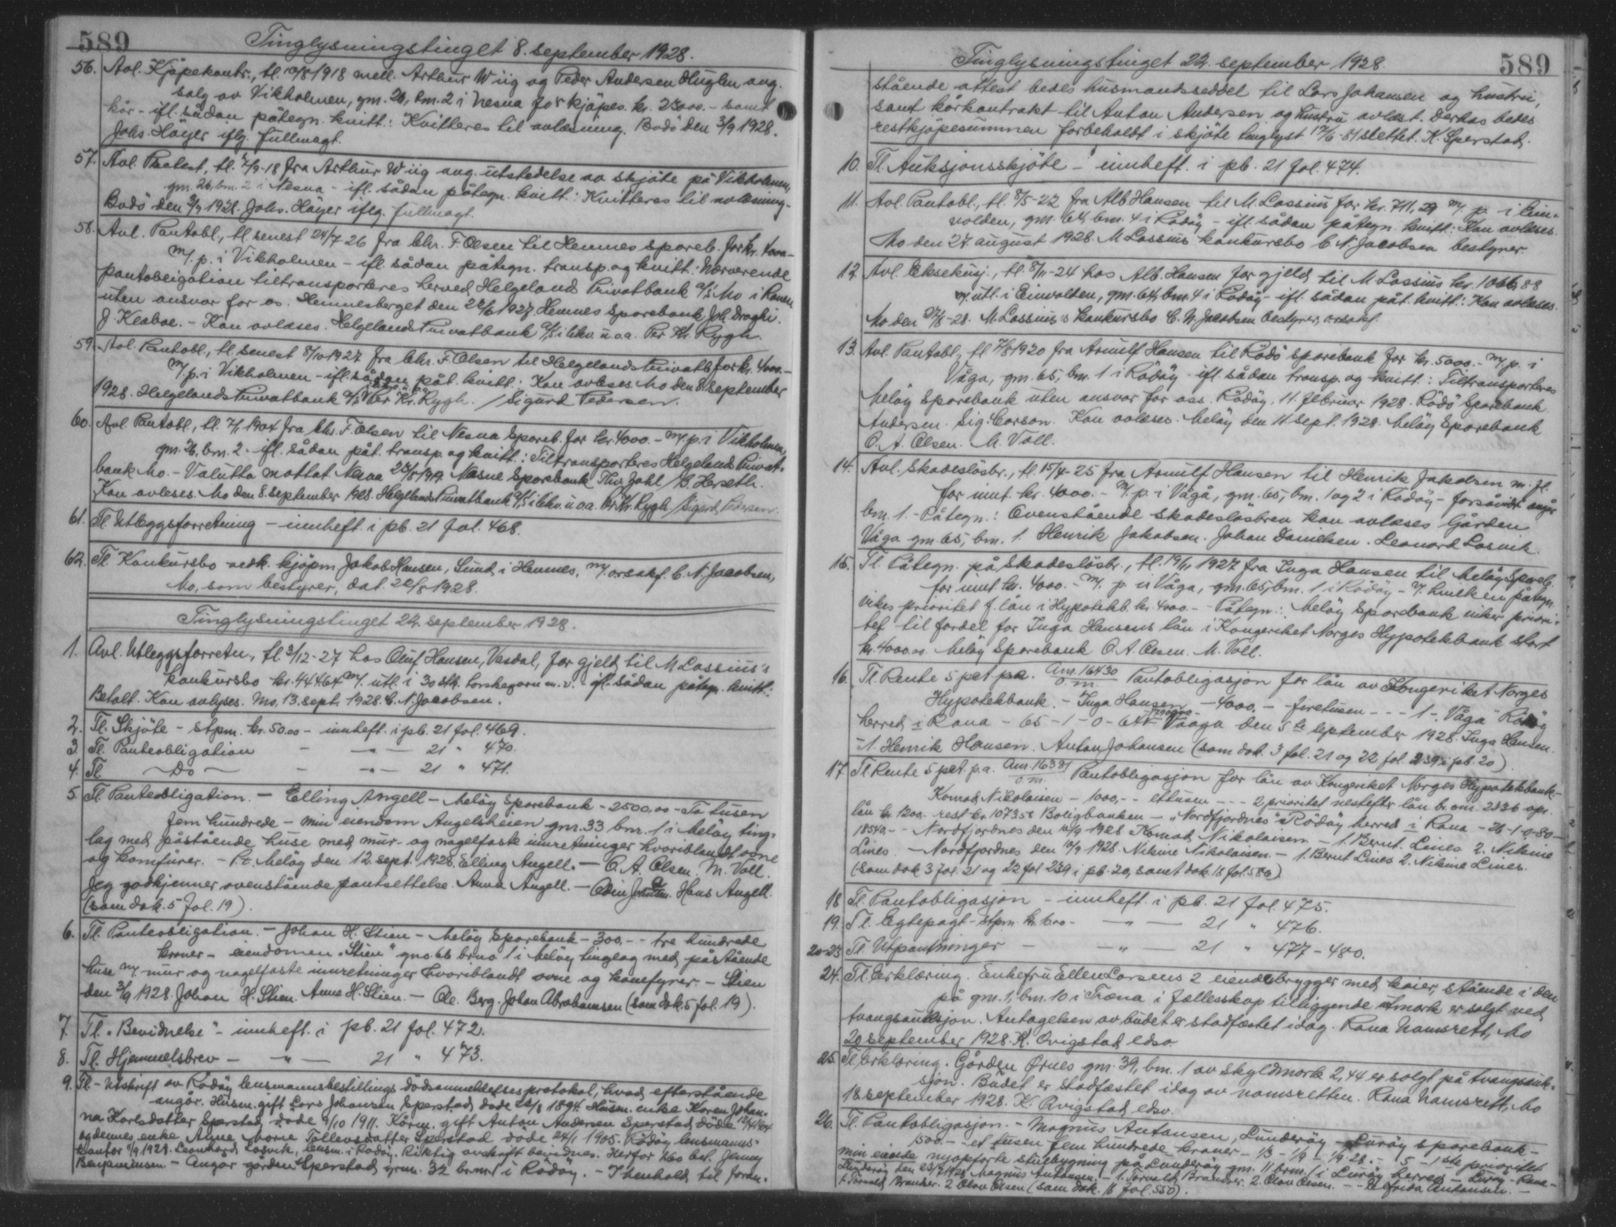 589
Tinglysningstinget 8. september 1928.
56. Avl. Kjøpekontr., tl. 10/8 1918 mell. Arthur Wiig og Peder Andersen Huglen ang.
salg av Vikholmen, gm. 26, bm. 2 i Nesna for kjøpes. kr. - samt
kår - ifl. sådan påtegn. kvitt: Kvitteres til avlæsning. Bodø den 3/9 1928.
Johs. Høyer iflg. fullmagt.
57. Avl. Protest, tl. 2/9-18 fra Arthur Wiig ang. utstedelse av skjøte på Vikholmen,
gm. 26, bm. 2 i Nesna - ifl. sådan påtegn. kvitt: Kvitteres til avlæsning.
Bodø den 3/9 1928. Johs. Høyer iflg. fullmagt.
58. Avl. Pantobl., tl. senest 24/7 26 fra Chr. F. Olsen til Hemnes Spareb. for kr.
m/ p. i Vikholmen - ifl. sådan påtegn. transp. og kvitt: Nærværende
pantobligation tiltransporteres herved Helgeland Privatbank A/S Mo i Ranen
uten ansvar for os. Hemnesberget den 1927 Hemnes Sparebank Joh.
J. Kleboe. - Kan avlæses. Helgelands Privatbank Per Kr. Rygh
59. Avl. Pantobl., tl. senest 8/10 1927 fra Chr. F. Olsen til Helgelands Privatb. for kr. 4000.-
m/ p. i Vikholmen - ifl. sådan påt. kvitt: Kan avleses Mo den 8 september
1928. Helgelands Privatbank A/S Per Kr. Rygh. / Sigurd Pedersen.
60. Avl. Pantobl., tl. 7/1 1904 fra Chr. F. Olsen til Nesna Spareb. for kr. 4000.- m/ p. i Vikholmen,
gm. 26, bm. 2 - ifl. sådan påt. transp. og kvitt: Tiltransporteres Helgelands Privat-
bank Mo - Valutta mottat Nesna Nesna Sparebank Thv. Johl
Kan avleses. Mo den 8. september 1928. Helgelands Privatbank Per Kr. Rygh / Sigurd Pedersen.
61. Tl. Utleggsforretning - innheft i pb. 21 fol. 468.
62. Tl. Konkursbo vedk. kjøpm. Jakob Hansen, Sund i Hemnes, m/ orsakf. C. N. Jacobsen,
Mo, som bestyrer, dat. 1928.
Tinglysningstinget 22. september 1928.
1. Avl. Utleggsforretn., tl. 3/12-27 hos Oluf Hansen, Vesdal, for gjeld til M. Lossius's
konkursbo kr. 444.64 m/ utl. i 30 stk. torskegarn m. v. - ifl. sådan påtegn. kvitt:
Betalt. Kan avlyses. Mo, 13. sept. 1928. C. N. Jacobsen.
2. Tl. Skjøte - stpm. kr. 50.00 - innheft i pb. 21 fol. 469.
3. Tl. Panteobligation - - " - 21 " 470.
4. Tl. - Do - - - " - 21 " 471.
5. Tl. Panteobligation. - Elling Angell - Meløy Sparebank - 2500,00 - To tusen
fem hundrede - min eiendom Angelsheien gm. 33 bm. 1 i Meløy ting-
lag med påstående huse med mur- og nagelfaste innretninger hvoriblandt ovne
og komfurer. - Meløy den 12 sept. 1928. Elling Angell. - O. A. Olsen. M. Voll.
Jeg godkjenner ovenstående pantsettelse. Anna Angell. - Odin Johansen. Hans Angell.
(som dok. 5 fol. 19).
6. Tl. Panteobligation. - Johan H. Stien - Meløy Sparebank - 300.- - tre hundrede
kroner - eiendomen "Stien" gno 66 brno 1 i Meløy tinglag med påstående
huse m/ mur og nagelfaste innretninger hvoriblandt ovne og komfyrer. - Stien
den 3/9 1928. Johan H. Stien. Anne H. Stien. - Ole. Berg. Johan Abrahamsen (som dok. 5 fol. 19).
7. Tl. "Bevidnelse" - innheft i pb. 21 fol. 472.
8. Tl. Hjemmelsbrev - - " - 21 " 473.
9. Tl. - Utskrift av Rødøy lensmannsbestillings dødsanmeldelsesprotokol, hvad efterstående
angår. Husm. gift Lars Johansen Sperstad døde 1894. Husm. enke Karen Johan-
na Karlsdatter Sperstad døde 9/10 1911. Kårm. gift Anton Andersen Sperstad døde
og dennes enke Anne, borne Tollevsdatter Sperstad døde 24/1 1905. Rødøy lensmanns-
kontor 1/9 1928. Leonhard Losvik, lensm. i Rødøy. Riktig avskrift bevidnes. Herfor kr. 60 bet. Jenny
Benjaminsen - Angår gården Sperstad, grm. 32 brnr. 1 i Rødøy. - I henhold til foran-
Tinglysningstinget 22. september 1928.
589
stående attest bedes husmandsseddel til Lars Johansen og hustru,
samt kårkontrakt til Anton Andersen og hustru avlæst. Derhos bedes
restkjøpesummen forbeholdt i skjøte tinglyst slettet. K. Sperstad.
10. Tl. Auksjonsskjøte - innheft. i pb. 21 fol. 474.
11. Avl. Pantobl., tl. 8/5-22 fra Alb. Hansen til M. Lossius for kr. 711,29 m/ p. i Ein-
volden, gm. 64, bm. 4 i Rødøy - ifl. sådan påtegn. kvitt: Kan avleses.
Mo den 27 august 1928. M. Lossius konkursbo C. N. Jacobsen bestyrer.
12. Avl. Eksekusj., tl. 8/11-24 hos Alb. Hansen for gjeld til M. Lossius kr. 1066,88
m/ utl. i Einvolden, gm. 64, bm. 4 i Rødøy - ifl. sådan påt. kvitt: Kan avleses.
Mo den 27/8-28. M. Lossius's konkursbo C. N. Jacobsen bestyrer, orsakf.
13. Avl. Pantobl., tl. 7/8 1920 fra Arnulf Hansen til Rødø Sparebank for kr. 5000.- m/ p. i
Våga, gm. 65, bm. 1 i Rødøy - ifl. sådan transp. og kvitt: Tiltransporteres
Meløy Sparebank uten ansvar for oss. Rødøy, 11. februar 1928. Rødø Sparebank
Andersen. Sig. Carson. Kan avleses. Meløy den 11 sept. 1928. Meløy Sparebank
O. A. Olsen. M. Voll.
14. Avl. Skadesløsbr., tl. 15/4-25 fra Arnulf Hansen til Henrik Jakobsen m. fl.
for inntl. kr. 4000.- m/ p. i Våga, gm. 65, bm. 1 og 2 i Rødøy - forsåvidt angår
bm. 1 - Påtegn.: Ovenstående skadesløsbrev kan avlæses Gården
Våga gm 65, bm. 1. Henrik Jakobsen. Johan Danielsen. Leonard Losvik.
15. Tl. Påtegn. på Skadesløsbr., tl. 1927 fra Inga Hansen til Meløy Spareb.
for inntl. kr. 4000.- m/ p. i Våga, gm. 65, bm. 1 i Rødøy - v/ hvilken påtegn.
vikes prioritet f. lån i Hypotekb. kr. 4000.- - Påtegn.: Meløy Sparebank viker priori-
tet til fordel for Inga Hansens lån i Kongeriket Norges Hypotekbank stort
kr. 4000.00 Meløy Sparebank O. A. Olsen. M. Voll.
16. Tl. Rente 5 pct. p.a. Am. 16430 Pantobligasjon for lån av Kongeriket Norges
Hypotekbank. - Inga Hansen - 4000.- - firetusen - - - 1 - Våga - Rødøy
herred i Rana - 65 - 1 - 0 - Vaaga den 5te september 1928 Inga Hansen.
- 1. Henrik Hansen. Anton Johansen (som dok. 3 fol. 21 og 22 fol. 239 i pb. 20).
17. Tl. Rente 5 pct. p.a. Am. 16381 Pantobligasjon for lån av Kongeriket Norges Hypotekbank -
Konrad Nikolaisen - 1000.- - ettusen - - - 2 prioritet nestefter lån
lån kr. 1200.- rest kr. 1073.58 Boligbanken - "Nordfjordnes" - Rødøy herred i Rana - 26 - 1 - 0 - 50 -
18540.- - Nordfjordnes den 10/9 1928 Konrad Nikolaisen - 1. Bernt Lines 2. Nikine
Lines - Nordfjordnes den 10/9 1928. Nikine Nikolaisen - 1. Bernt Lines 2. Nikine Lines.
(som dok 3 fol. 21 og 22 fol 239 i pb. 20, samt dok. 18 fol. 580)
18. Tl. Pantobligasjon - innheft i pb. 21 fol. 475.
19. Tl. Føderkontrakt - stpm. kr. 6.00 - - " - 21 " 476.
20-23. Tl. Utpantninger - - " - 21 " 477-480.
24. Tl. Erklæring. Enkefru Ellen Larsens 2 eiendebrygger med kaier, stående i den
på gm. 1, bm. 10 i Træna i fællesskap tilliggende utmark er solgt ved
tvangsauksjon. Antagelsen av budet er stadfæstet idag. Rana Namsrett, Mo
20 september 1928. K. Qvigstad edsv.
25. Tl. Erklæring. Gården Ørnes gm. 39, bm. 1 av skyldmark 2,44 er solgt på tvangsauk-
sjon. Budet er stadfæstet idag av namsretten. Rana Namsrett, Mo
18 september 1928. K. Qvigstad edsv.
26. Tl. Pantobligasjon. - Magnus Antonsen, Lunderøy - Lurøy sparebank -
1500.- - et tusen fem hundrede kroner - 1ste prioritet
min eiende nyopførte stuebygning på Lunderøy gm. 11 brnr. 1 i Lurøy herred - Lurøy - Rana -
Lunderøy den 1928. Magnus Antonsen. - 1. Torvald Brander. 2. Olav Olsen. - Elfrida Antonsen. -
1. Torvald Brander. 2. Olav Olsen (som dok. 18 fol. 550).